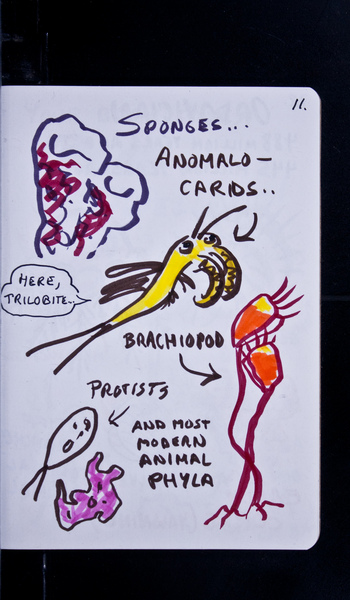 11.
SPONGES...
ANOMALO-
CARIDS..
HERE,
TRILOBITE..
BRACHIOPOD
PROTISTS
AND MOST
MODERN
ANIMAL
PHYLA